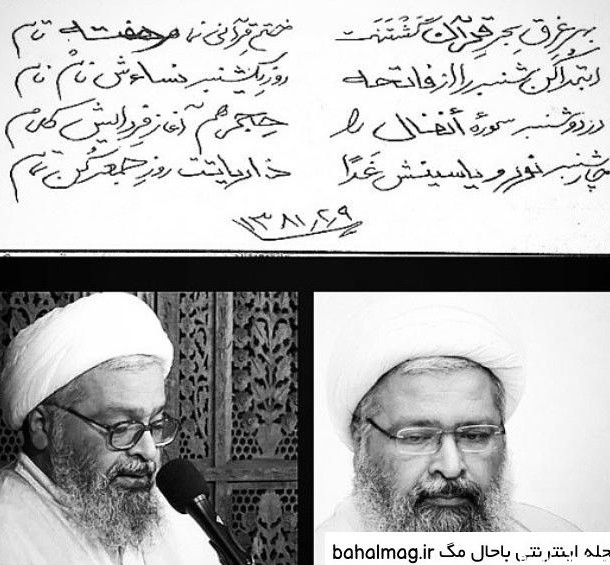 بهر غرق بحر قرآن گشتنت ختم قرآنی نما هر هفته تام
ابتدا کن شنبه را از فاتحه روز یکشنبه نساءش نامْ نام
در دوشنبه سورهٔ أنفال را حِجر هم آغاز فردایش کلام
چارشنبه نور و یاسینش غَدًا ذاریاتت روز جمعه کُن تمام
۱۳۸۱٫۲٫۹
جله اینترنتی باحال مگ bahalmag.ir